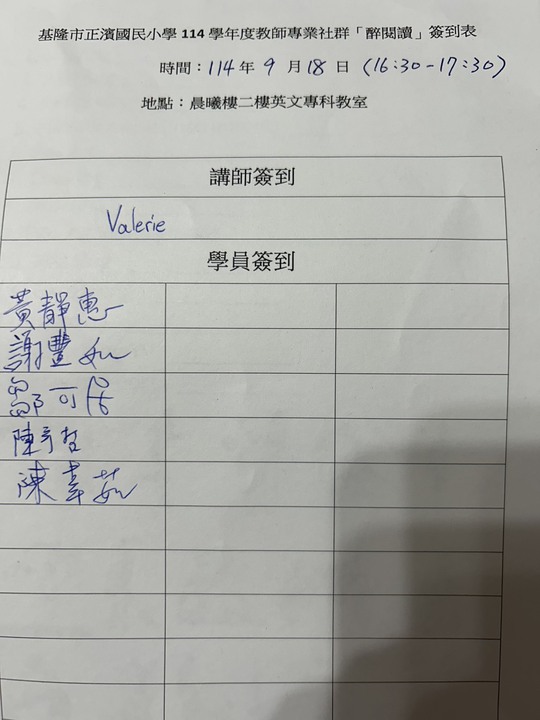 基隆市正濱國民小學 114 學年度教師專業社群「醉閱讀」簽到表
時間：114 年 9 月 18 日 (16:30-17:30)
地點：晨曦樓二樓英文專科教室
講師簽到
Valerie
學員簽到
黃靜惠
謝豐如
鄒可居
陳
陳韋茹